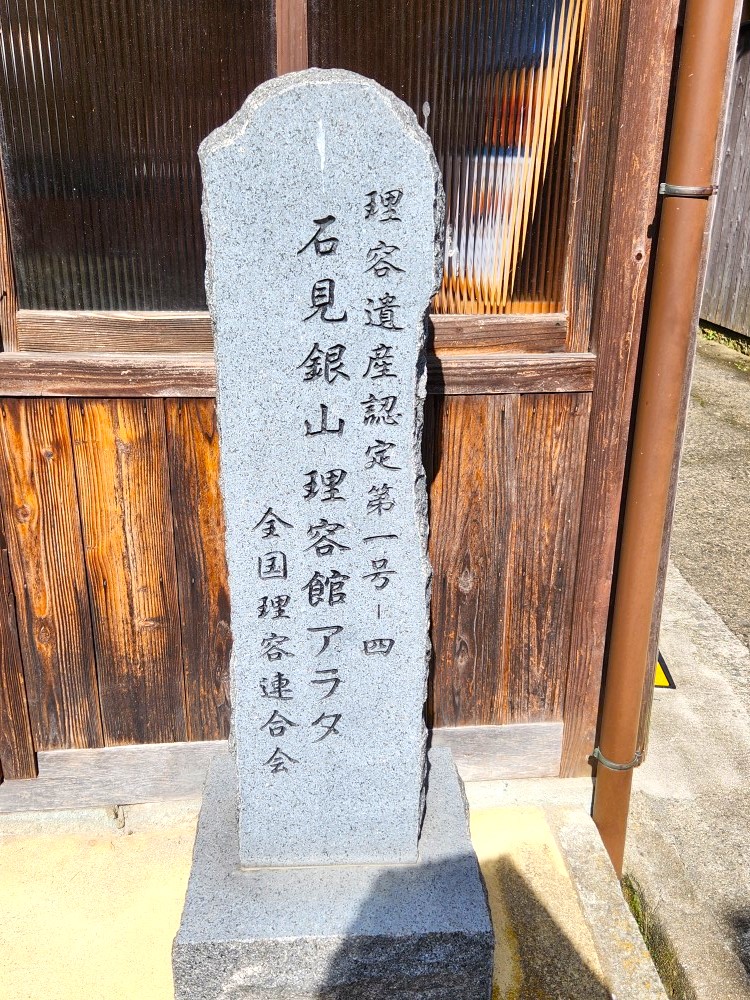 理容遺産認定第一号-四
石見銀山理容館アラタ
全国理容連合会